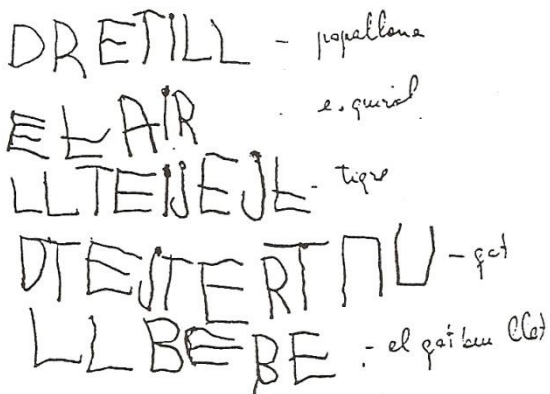 DRETILL - papallona
EŁAIR - esquirol
LLTEIJEJŁ - tigre
DTEJTERTΠU - gat
LLBEBE - el gat